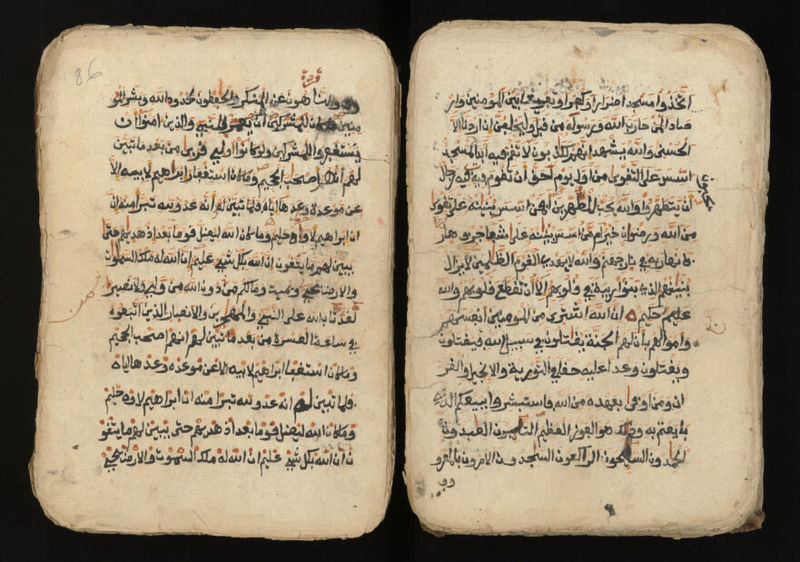 اتخذوا مسجدا ضرارا وكفرا وتفريقا بين المومنين وار
صادا لمن حارب الله ورسوله من قبل وليحلفن ان اردنا الا
الحسنى والله يشهد انهم لكذبون لا تقم فيه ابدا لمسجد
اسس على التقوى من اول يوم احق ان تقوم فيه فيه رجال
يحبون
ان يتطهروا والله يحب المطهرين افمن اسس بنينه على تقوى
من الله ورضوان خير ام من اسس بنينه على شفا جرف هار
فانهار به في نار جهنم والله لا يهدي القوم الظلمين لا يزال
بنينهم الذي بنوا ريبة في قلوبهم الا ان تقطع قلوبهم والله
عليم حكيم ان الله اشترى من المومنين انفسهم
واموالهم بان لهم الجنة يقتلون في سبيل الله فيقتلون
ويقتلون وعدا عليه حقا في التورية والانجيل والقر
ان ومن اوفى بعهده من الله فاستبشروا ببيعكم الذي
بايعتم به وذلك هو الفوز العظيم التئبون العبدون
الحمدون السئحون الركعون السجدون الامرون بالمعرو
86
والناهون عن المنكر والحفظون لحدود الله وبشر المو
منين ما كان للنبي والذين امنوا ان
يستغفروا للمشركين ولو كانوا اولي قربى من بعد ما تبين
لهم انهم اصحب الجحيم وما كان استغفار ابراهيم لابيه الا
عن موعدة وعدها اياه فلما تبين له انه عدو لله تبرا منه ان
ان ابراهيم لاوه حليم وما كان الله ليضل قوما بعد اذ هديهم حتى
يبين لهم ما يتقون ان الله بكل شيء عليم ان الله له ملك السموت
والارض يحي ويميت وما لكم من دون الله من ولي ولا نصير
لقد تاب الله على النبي والمهجرين والانصار الذين اتبعوه
في ساعة العسرة من بعد ما تبين لهم انهم اصحب الجحيم
وما كان استغفار ابراهيم لابيه الا عن موعدة وعدها اياه
فلما تبين له انه عدو لله تبرا منه ان ابراهيم لاوه حليم
وما كان الله ليضل قوما بعد اذ هديهم حتى يبين لهم ما يتقو
ن ان الله بكل شيء عليم ان الله له ملك السموت والارض يحي